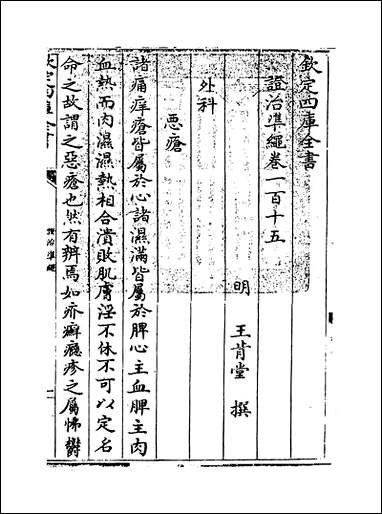 欽定四庫全書
證治準繩卷一百十五
明 王肯堂 撰
外科
惡瘡
諸痛痒瘡皆屬於心諸濕滿皆屬於脾心主血脾主肉
血熱而肉濕濕熱相合潰敗肌膚淫不休不可以定名
命之故謂之惡瘡也然有辨焉如疥癬癮疹之屬悌欝
欽定四庫全書
證治準繩
一